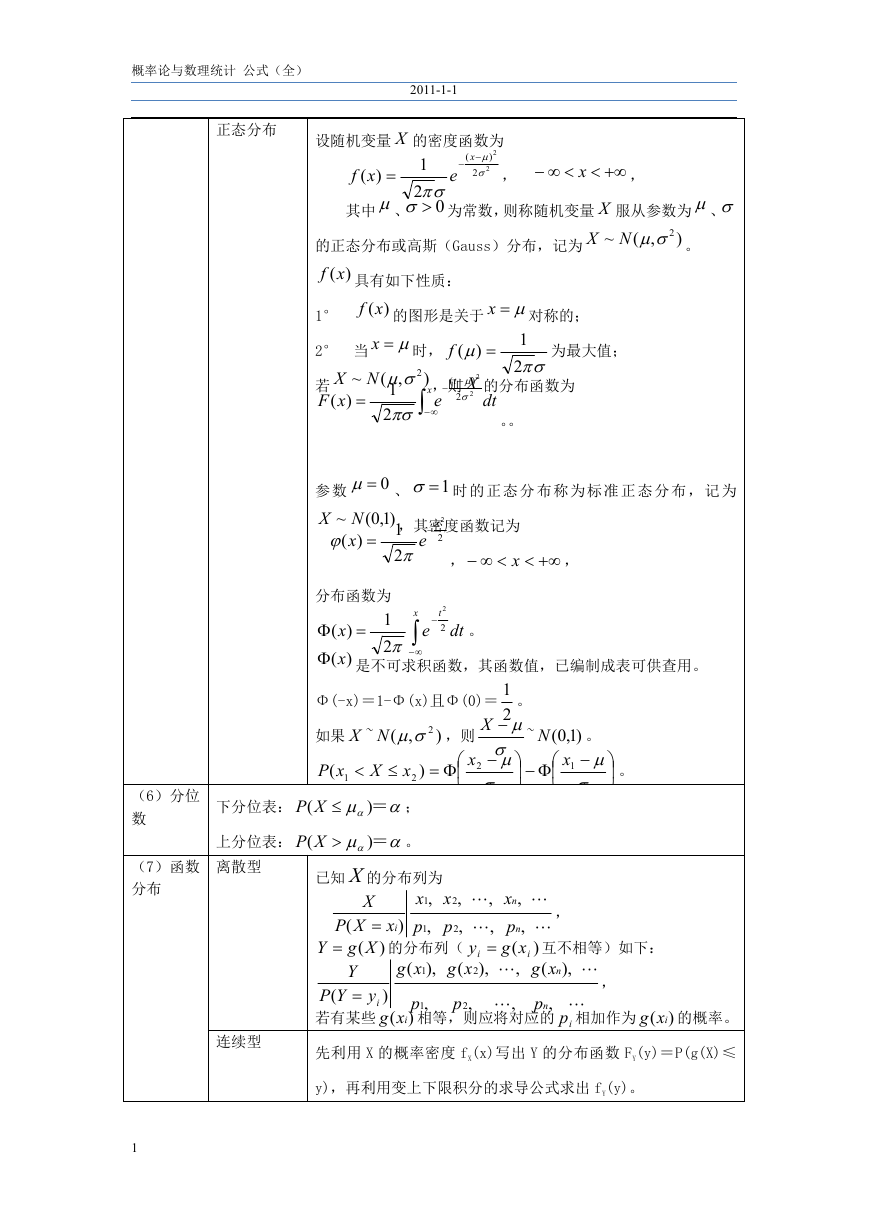 概率论与数理统计 公式（全）
2011-1-1
正态分布
设随机变量 X 的密度函数为
f(x) = \frac{1}{\sqrt{2\pi}\sigma} e^{-\frac{(x-\mu)^2}{2\sigma^2}}， −∞ < x < +∞，
其中 μ、σ > 0 为常数，则称随机变量 X 服从参数为 μ、σ
的正态分布或高斯（Gauss）分布，记为 X ~ N(μ,σ²)。
f(x) 具有如下性质：
1° f(x) 的图形是关于 x = μ 对称的；
2° 当 x = μ 时，f(μ) = \frac{1}{\sqrt{2\pi}\sigma} 为最大值；
若 X ~ N(μ,σ²)，则 X 的分布函数为
F(x) = \frac{1}{\sqrt{2\pi}\sigma} \int_{-\infty}^{x} e^{-\frac{(t-\mu)^2}{2\sigma^2}} dt 。。
参数 μ = 0 、 σ = 1 时的正态分布称为标准正态分布，记为
X ~ N(0,1)，其密度函数记为
φ(x) = \frac{1}{\sqrt{2\pi}} e^{-\frac{x^2}{2}}，−∞ < x < +∞，
分布函数为
Φ(x) = \frac{1}{\sqrt{2\pi}} \int_{-\infty}^{x} e^{-\frac{t^2}{2}} dt 。
Φ(x) 是不可求积函数，其函数值，已编制成表可供查用。
Φ(-x)＝1-Φ(x)且Φ(0)＝\frac{1}{2}。
如果 X ~ N(μ,σ²)，则 \frac{X-\mu}{\sigma} ~ N(0,1)。
P(x₁ < X ≤ x₂) = Φ\left(\frac{x_2-\mu}{\sigma}\right) − Φ\left(\frac{x_1-\mu}{\sigma}\right)。
（6）分位
数
下分位表：P(X ≤ μ_α)＝α；
上分位表：P(X > μ_α)＝α。
（7）函数
分布
离散型
已知 X 的分布列为
X | x1, x2, ⋯, xn, ⋯
P(X = xi) | p1, p2, ⋯, pn, ⋯ ，
Y = g(X) 的分布列（ y_i = g(x_i) 互不相等）如下：
Y | g(x1), g(x2), ⋯, g(xn), ⋯
P(Y = y_i) | p1, p2, ⋯, pn, ⋯ ，
若有某些 g(xi) 相等，则应将对应的 p_i 相加作为 g(xi) 的概率。
连续型
先利用 X 的概率密度 f_X(x)写出 Y 的分布函数 F_Y(y)＝P(g(X)≤
y)，再利用变上下限积分的求导公式求出 f_Y(y)。
1